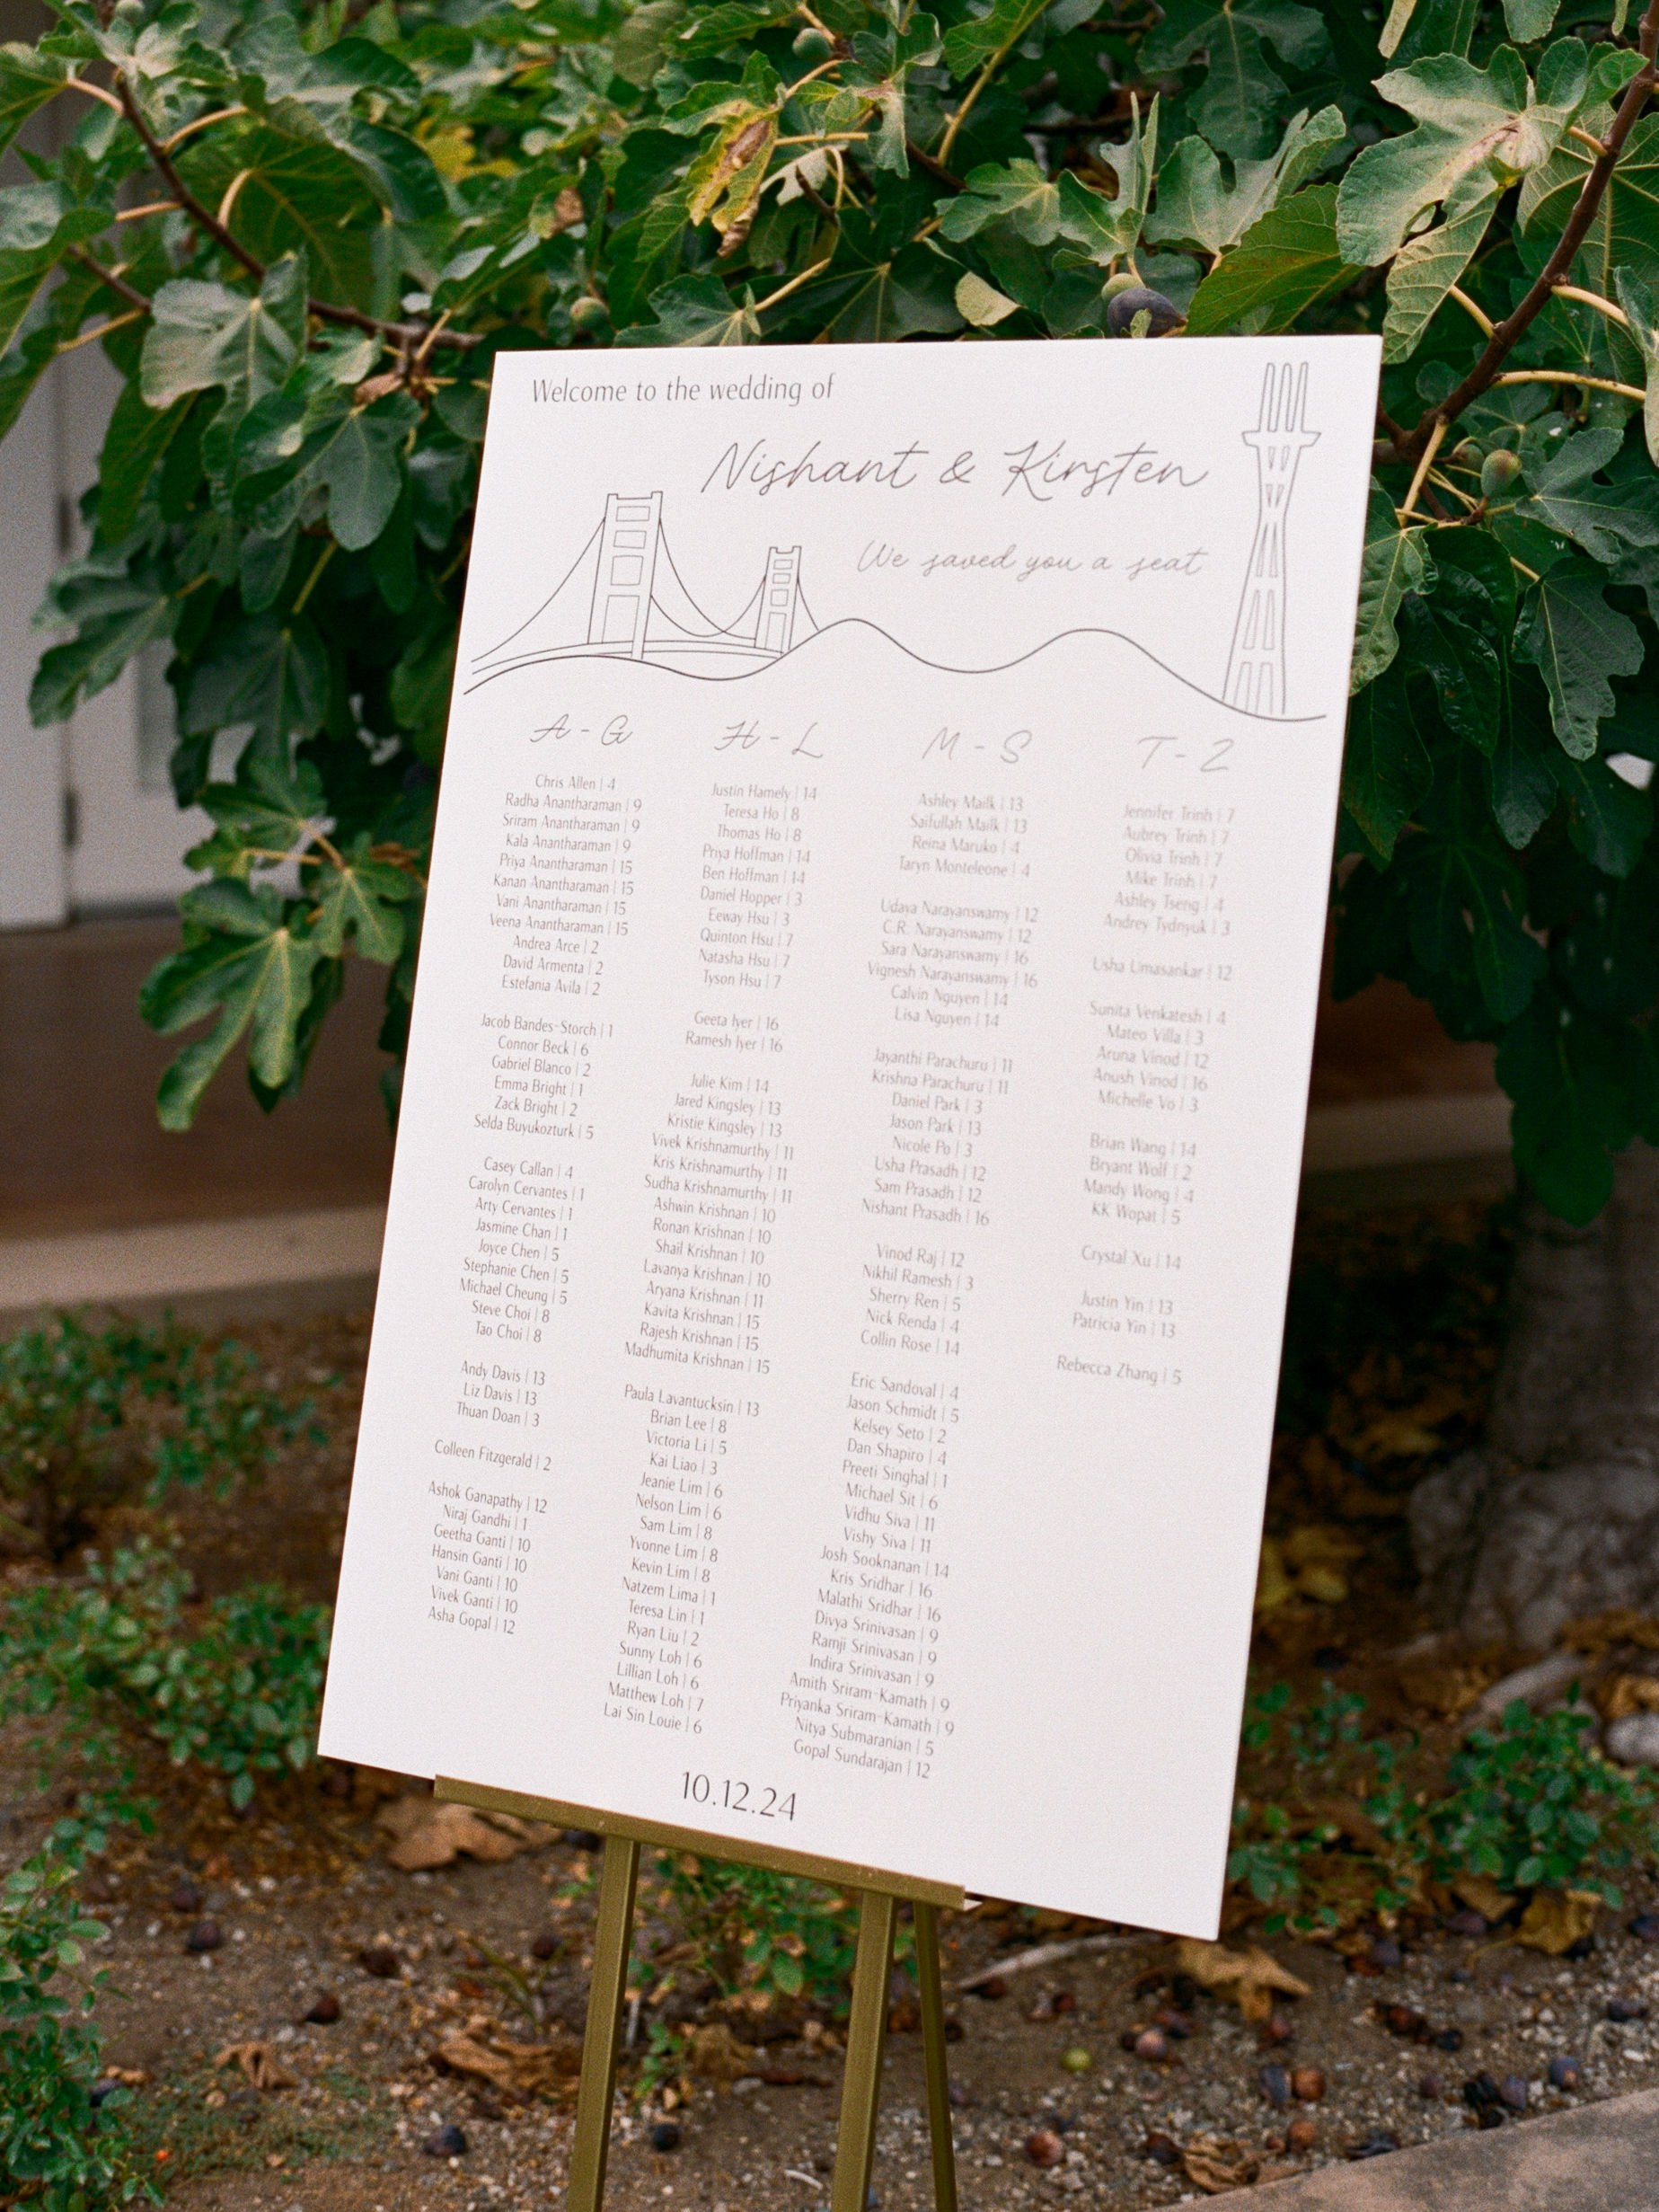 Welcome to the wedding of
Nishant & Kirsten
We saved you a seat
A - G
Chris Allen | 4
Radha Anantharaman | 9
Sriram Anantharaman | 9
Kala Anantharaman | 9
Priya Anantharaman | 15
Kanan Anantharaman | 15
Vani Anantharaman | 15
Veena Anantharaman | 15
Andrea Arce | 2
David Armenta | 2
Estefania Avila | 2
Jacob Bandes-Storch | 1
Connor Beck | 6
Gabriel Blanco | 2
Emma Bright | 1
Zack Bright | 2
Selda Buyukozturk | 5
Casey Callan | 4
Carolyn Cervantes | 1
Arty Cervantes | 1
Jasmine Chan | 1
Joyce Chen | 5
Stephanie Chen | 5
Michael Cheung | 5
Steve Choi | 8
Tao Choi | 8
Andy Davis | 13
Liz Davis | 13
Thuan Doan | 3
Colleen Fitzgerald | 2
Ashok Ganapathy | 12
Niraj Gandhi | 1
Geetha Ganti | 10
Hansin Ganti | 10
Vani Ganti | 10
Vivek Ganti | 10
Asha Gopal | 12
H - L
Justin Hamely | 14
Teresa Ho | 8
Thomas Ho | 8
Priya Hoffman | 14
Ben Hoffman | 14
Daniel Hopper | 3
Eeway Hsu | 3
Quinton Hsu | 7
Natasha Hsu | 7
Tyson Hsu | 7
Geeta Iyer | 16
Ramesh Iyer | 16
Julie Kim | 14
Jared Kingsley | 13
Kristie Kingsley | 13
Vivek Krishnamurthy | 11
Kris Krishnamurthy | 11
Sudha Krishnamurthy | 11
Ashwin Krishnan | 10
Ronan Krishnan | 10
Shail Krishnan | 10
Lavanya Krishnan | 10
Aryana Krishnan | 11
Kavita Krishnan | 15
Rajesh Krishnan | 15
Madhumita Krishnan | 15
Paula Lavantucksin | 13
Brian Lee | 8
Victoria Li | 5
Kai Liao | 3
Jeanie Lim | 6
Nelson Lim | 6
Sam Lim | 8
Yvonne Lim | 8
Kevin Lim | 8
Natzem Lima | 1
Teresa Lin | 1
Ryan Liu | 2
Sunny Loh | 6
Lillian Loh | 6
Matthew Loh | 7
Lai Sin Louie | 6
M - S
Ashley Mailk | 13
Saifullah Mailk | 13
Reina Maruko | 4
Taryn Monteleone | 4
Udaya Narayanswamy | 12
C.R. Narayanswamy | 12
Sara Narayanswamy | 16
Vignesh Narayanswamy | 16
Calvin Nguyen | 14
Lisa Nguyen | 14
Jayanthi Parachuru | 11
Krishna Parachuru | 11
Daniel Park | 3
Jason Park | 13
Nicole Po | 3
Usha Prasadh | 12
Sam Prasadh | 12
Nishant Prasadh | 16
Vinod Raj | 12
Nikhil Ramesh | 3
Sherry Ren | 5
Nick Renda | 4
Collin Rose | 14
Eric Sandoval | 4
Jason Schmidt | 5
Kelsey Seto | 2
Dan Shapiro | 4
Preeti Singhal | 1
Michael Sit | 6
Vidhu Siva | 11
Vishy Siva | 11
Josh Sooknanan | 14
Kris Sridhar | 16
Malathi Sridhar | 16
Divya Srinivasan | 9
Ramji Srinivasan | 9
Indira Srinivasan | 9
Amith Sriram-Kamath | 9
Priyanka Sriram-Kamath | 9
Nitya Submaranian | 5
Gopal Sundarajan | 12
T - Z
Jennifer Trinh | 7
Aubrey Trinh | 7
Olivia Trinh | 7
Mike Trinh | 7
Ashley Tseng | 4
Andrey Tydnyuk | 3
Usha Umasankar | 12
Sunita Venkatesh | 4
Mateo Villa | 3
Aruna Vinod | 12
Anush Vinod | 16
Michelle Vo | 3
Brian Wang | 14
Bryant Wolf | 2
Mandy Wong | 4
KK Wopat | 5
Crystal Xu | 14
Justin Yin | 13
Patricia Yin | 13
Rebecca Zhang | 5
10.12.24